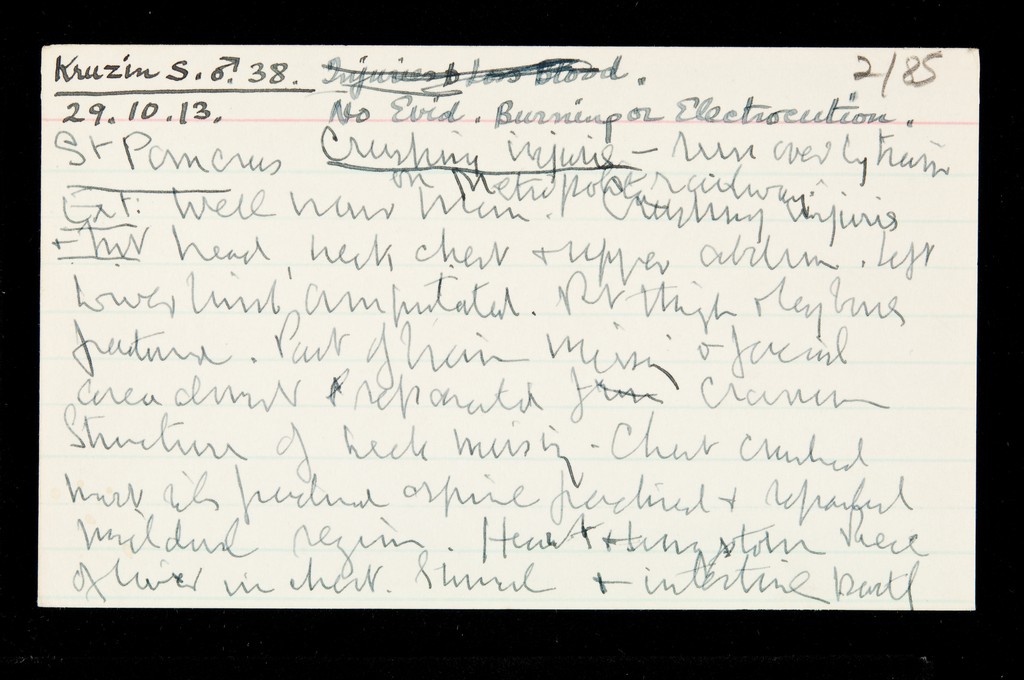 Kruzin S. ♂. 38. Injuries & Loss Blood. 2/85
29.10.13. No Evid. Burning or Electrocution.
St Pancras Crushing injuries – run over by train
on Metropolitan railway.
Ext: Well nour man. Crushing injuries
+ Int head, neck chest + upper abdom. Left
lower limb amputated. Rt thigh + leg bones
fractured. Part of brain missing + facial
area almost separated from cranium
Structure of neck missing – Chest crushed
most ribs fractured + spine fractured + separated
mid dorsal region. Heart + lungs torn Piece
of liver in chest. Stomach + intestine partly